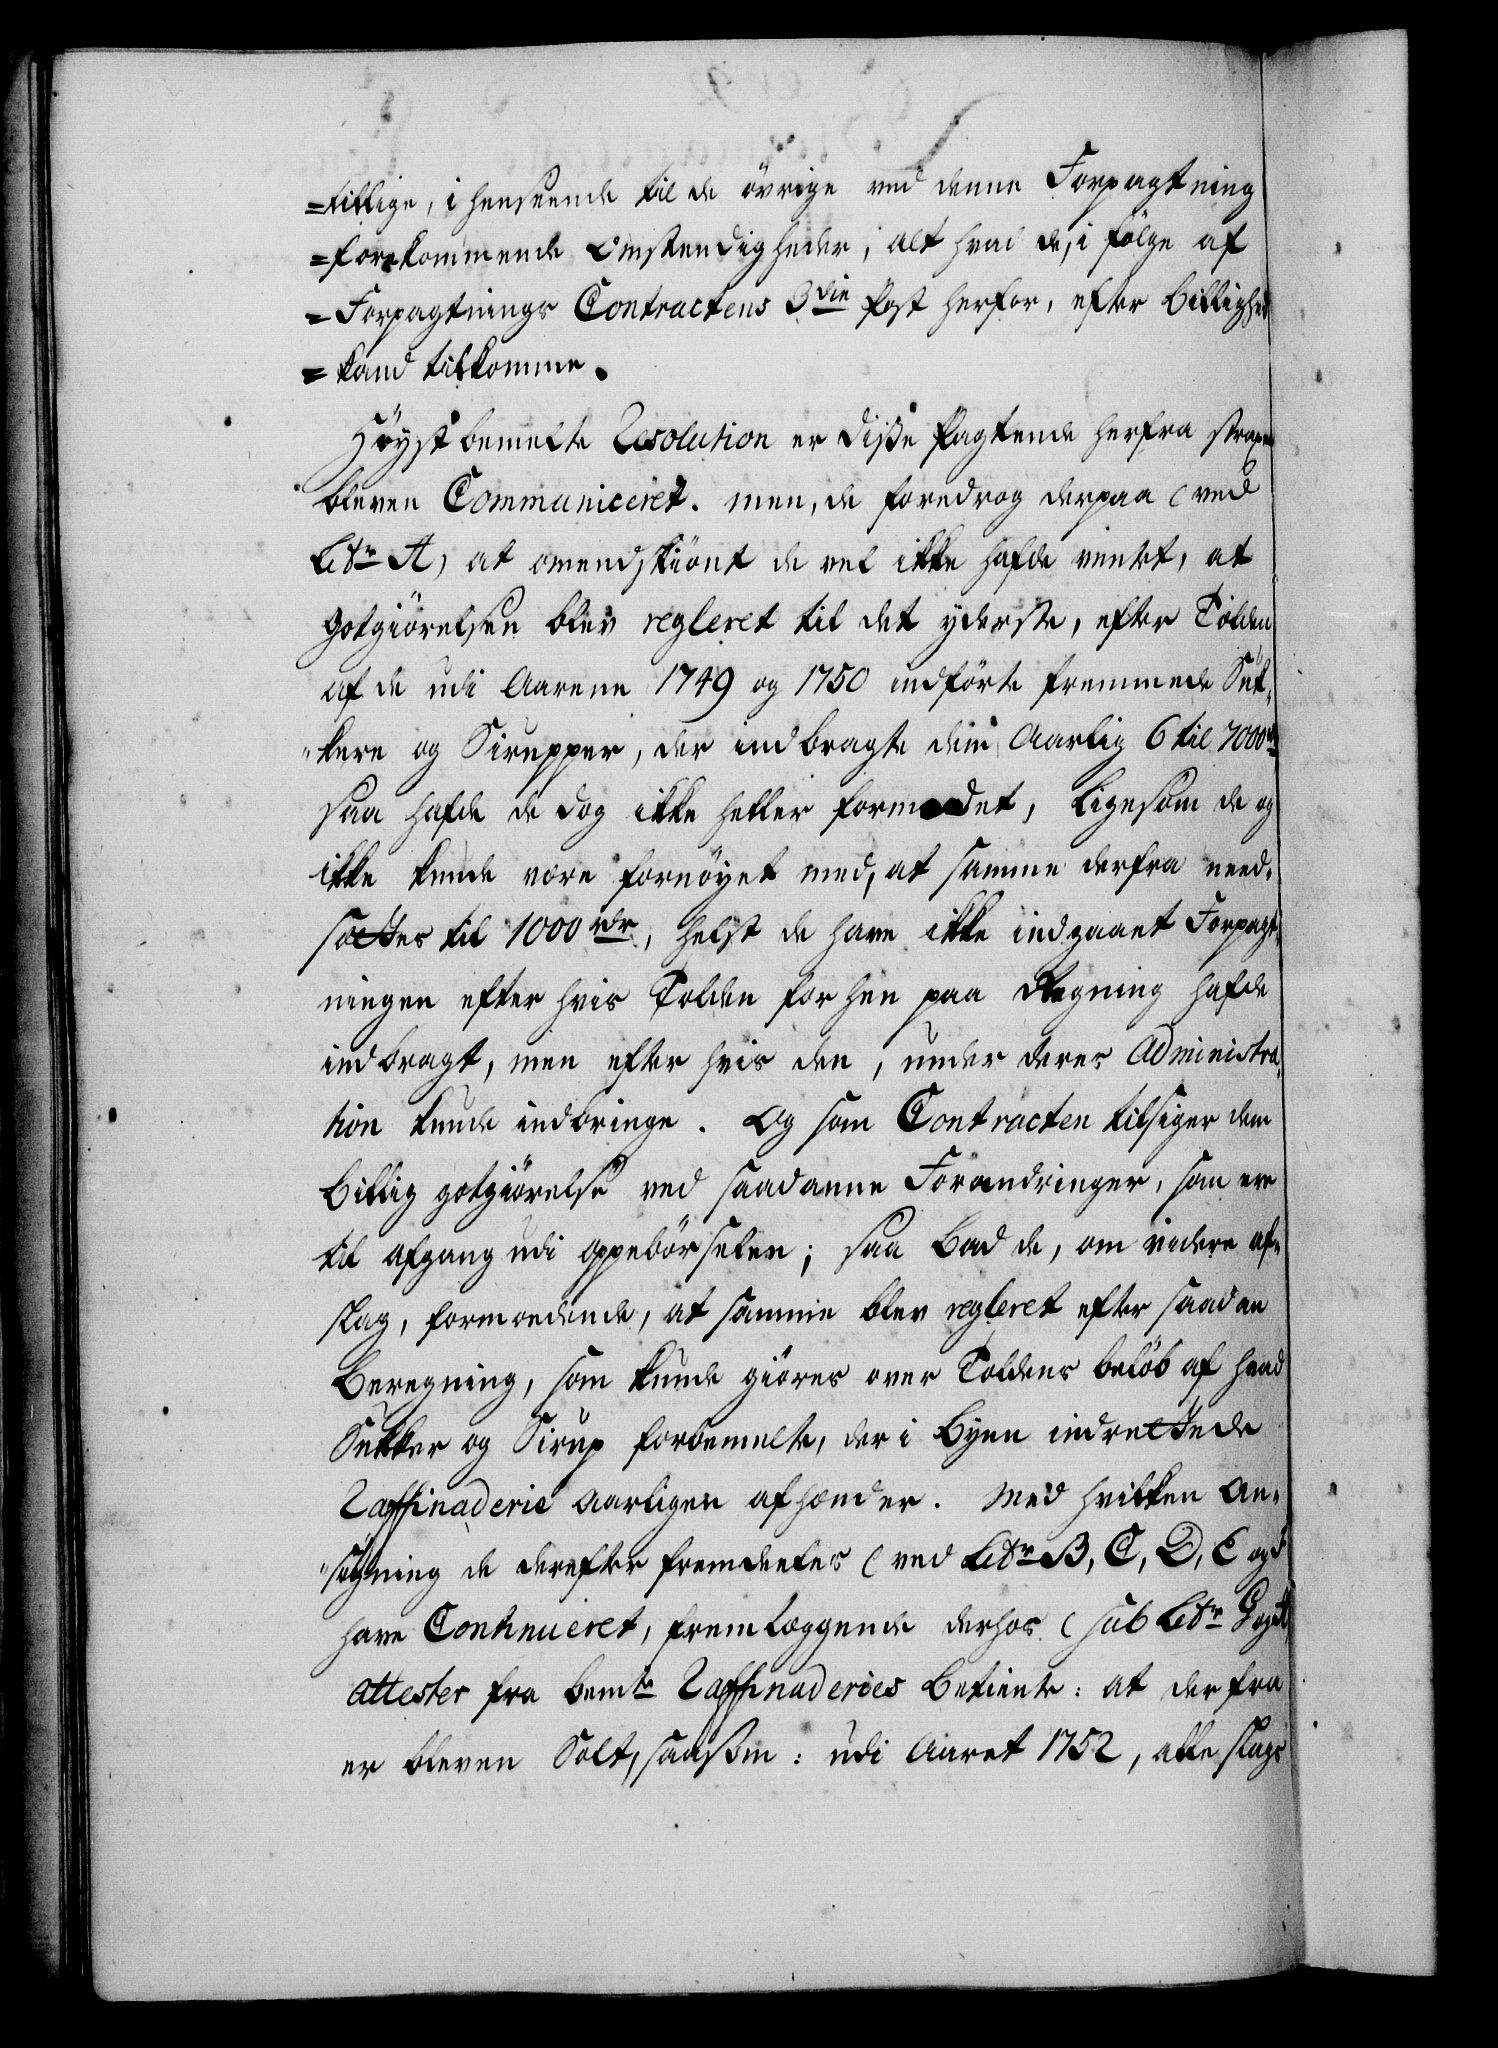 =tillige, i henseende til de övrige ved denne Forpagtning
=forekommende Omstendigheder, alt hvad de, i følge af
=Forpagtnings Contractens 3die Post herfor, efter billighed
=kand tilkomme.
Høystbemelte Resolution er disse Pagtende herfra strax
bleven Communiceret. men, de foredrog derpaa (ved
Litr A) at omendskiönt de vel ikke hafde ventet, at
Gotgiörelsen blev regleret til det yderste, efter Tolden
af de udi Aarene 1749 og 1750 indförte fremmede Suk-
"kere og Sirupper, der indbragte dem Aarlig 6 til 7000 rdr
saa hafde de dog ikke heller formodet, ligesom de og
ikke kunde være fornöyet med, at samme derfra need-
sættes til 1000 rdr, helst de have ikke indgaaet Forpagt-
ningen efter hvis Tolden forhen paa Regning hafde
indbragt, men efter hvis den, under deres Administra-
tion kunde indbringe. Og som Contracten tilsiger dem
billig gotgiörelse ved saadanne Forandringer, som ere
til afgang udi oppebörselen; saa bad de, om videre af-
slag, formodende, at samme blev regleret efter saadan
Beregning, som kunde giöres over Toldens belöb af hvad
Sukker og Sirup forbemelte, der i Byen indrettede
Raffinaderie aarligen afhænder. Med hvilken An-
"søgning de derefter fremdeeles (ved Litr B, C, D, E og F
have Continueret, fremlæggende derhos (sub Litr G og H)
attester fra bemte Raffinaderies Betiente: at derfra
er bleven Solt, saasom: udi Aaret 1752, alle slags